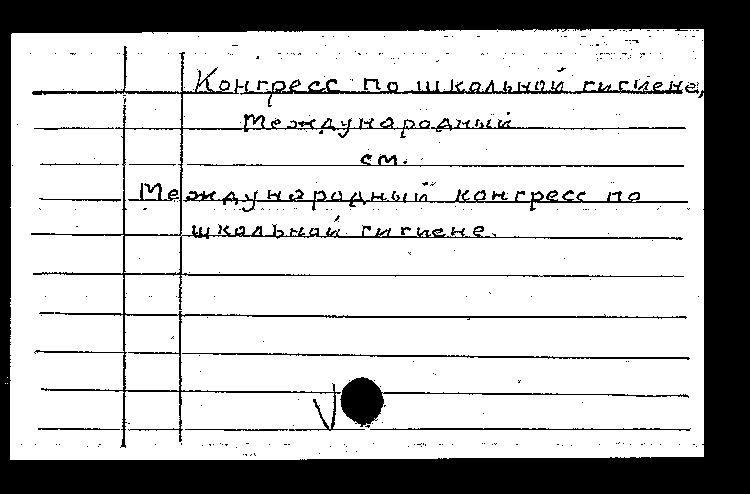 Конгресс по школьной гигиене,
Международный
см.
Международный конгресс по
школьной гигиене.